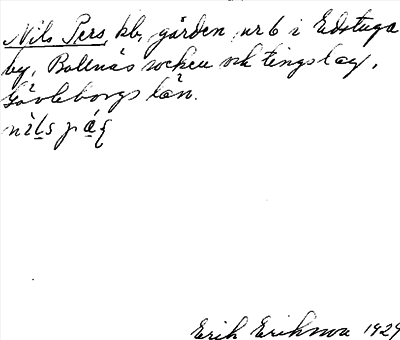 Nils Pers, kb, gården nr 6 i Edstuga
by, Bollnäs socken och tingslag,
Gävleborgs län.
Erik Erikson 1929